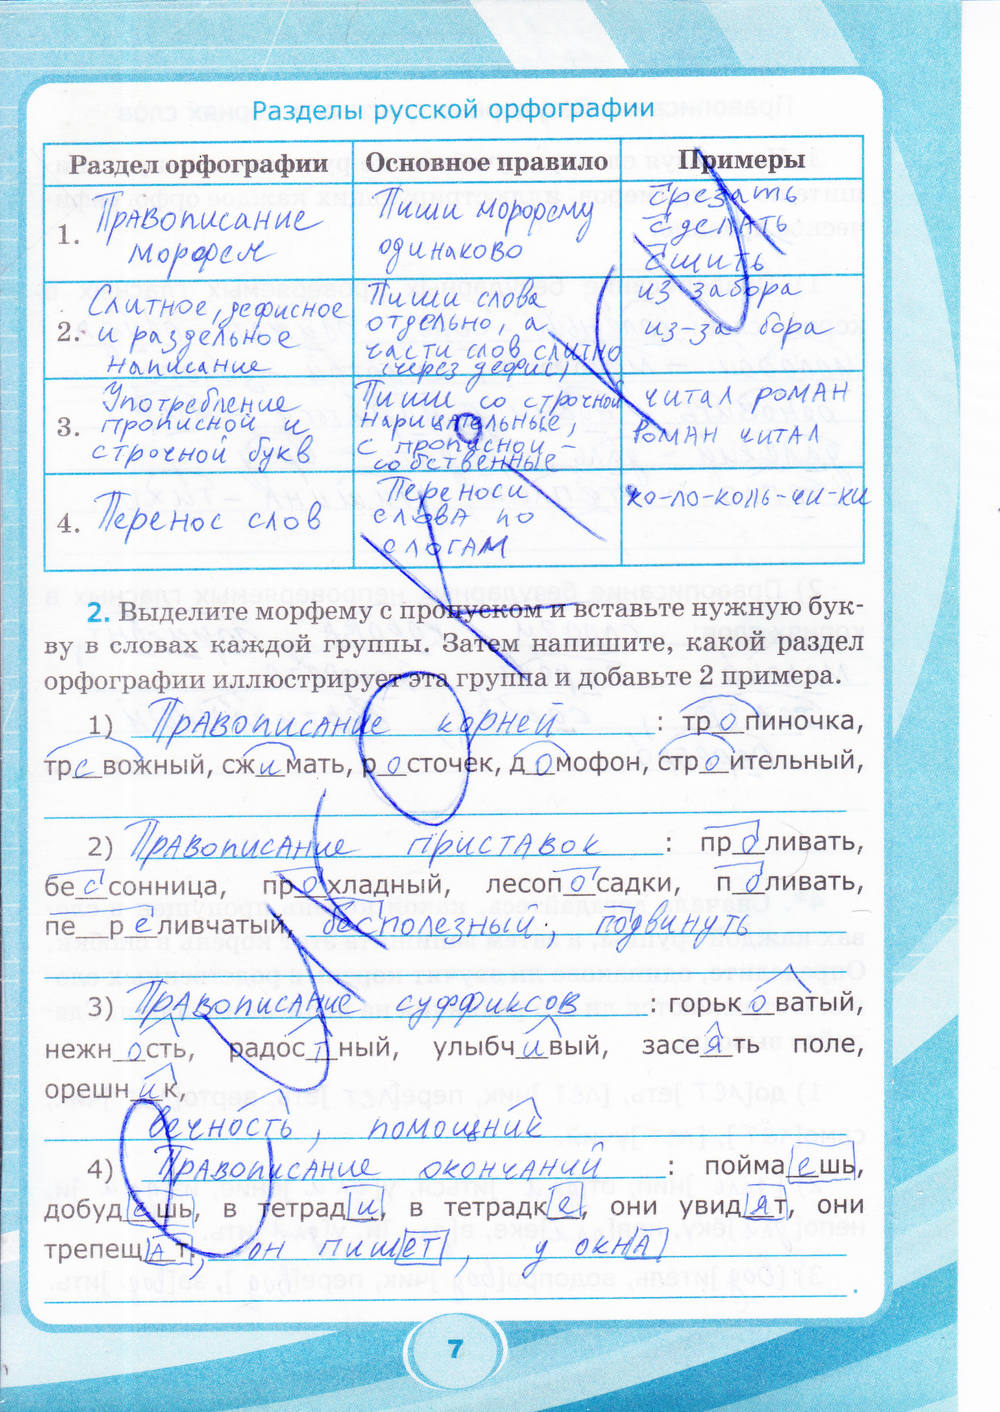 Разделы русской орфографии
Раздел орфографии Основное правило Примеры
1. Правописание морфем
Пиши морфему одинаково
срезать
сделать
сшить
2. Слитное, дефисное
и раздельное
написание
Пиши слова
отдельно, а
части слов слитно
(через дефис)
из забора
из-за бора
3. Употребление
прописной и
строчной букв
Пиши со строчной
нарицательные,
с прописной -
собственные
читал роман
Роман читал
4. Перенос слов
Переноси
слова по
слогам
ко-ло-коль-чи-ки
2. Выделите морфему с пропуском и вставьте нужную бук-
ву в словах каждой группы. Затем напишите, какой раздел
орфографии иллюстрирует эта группа и добавьте 2 примера.
1) Правописание корней : тр о пиночка,
тр е вожный, сж и мать, р о сточек, д о мофон, стр о ительный,
2) Правописание приставок : пр о ливать,
бе с сонница, пр о хладный, лесоп о садки, п о ливать,
пе р е ливчатый, бесполезный, подвинуть
3) Правописание суффиксов : горьк о ватый,
нежн о сть, радос т ный, улыбч и вый, засе я ть поле,
орешн и к,
вечность, помощник
4) Правописание окончаний : пойма е шь,
добуд е шь, в тетрад и, в тетрадк е, они увид я т, они
трепещ а т, он пишет, у окна
.
7